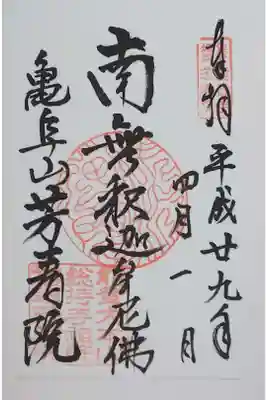 奉拝 平成廿九年
四月一日
南無釈迦牟尼佛
亀阜山芳春院